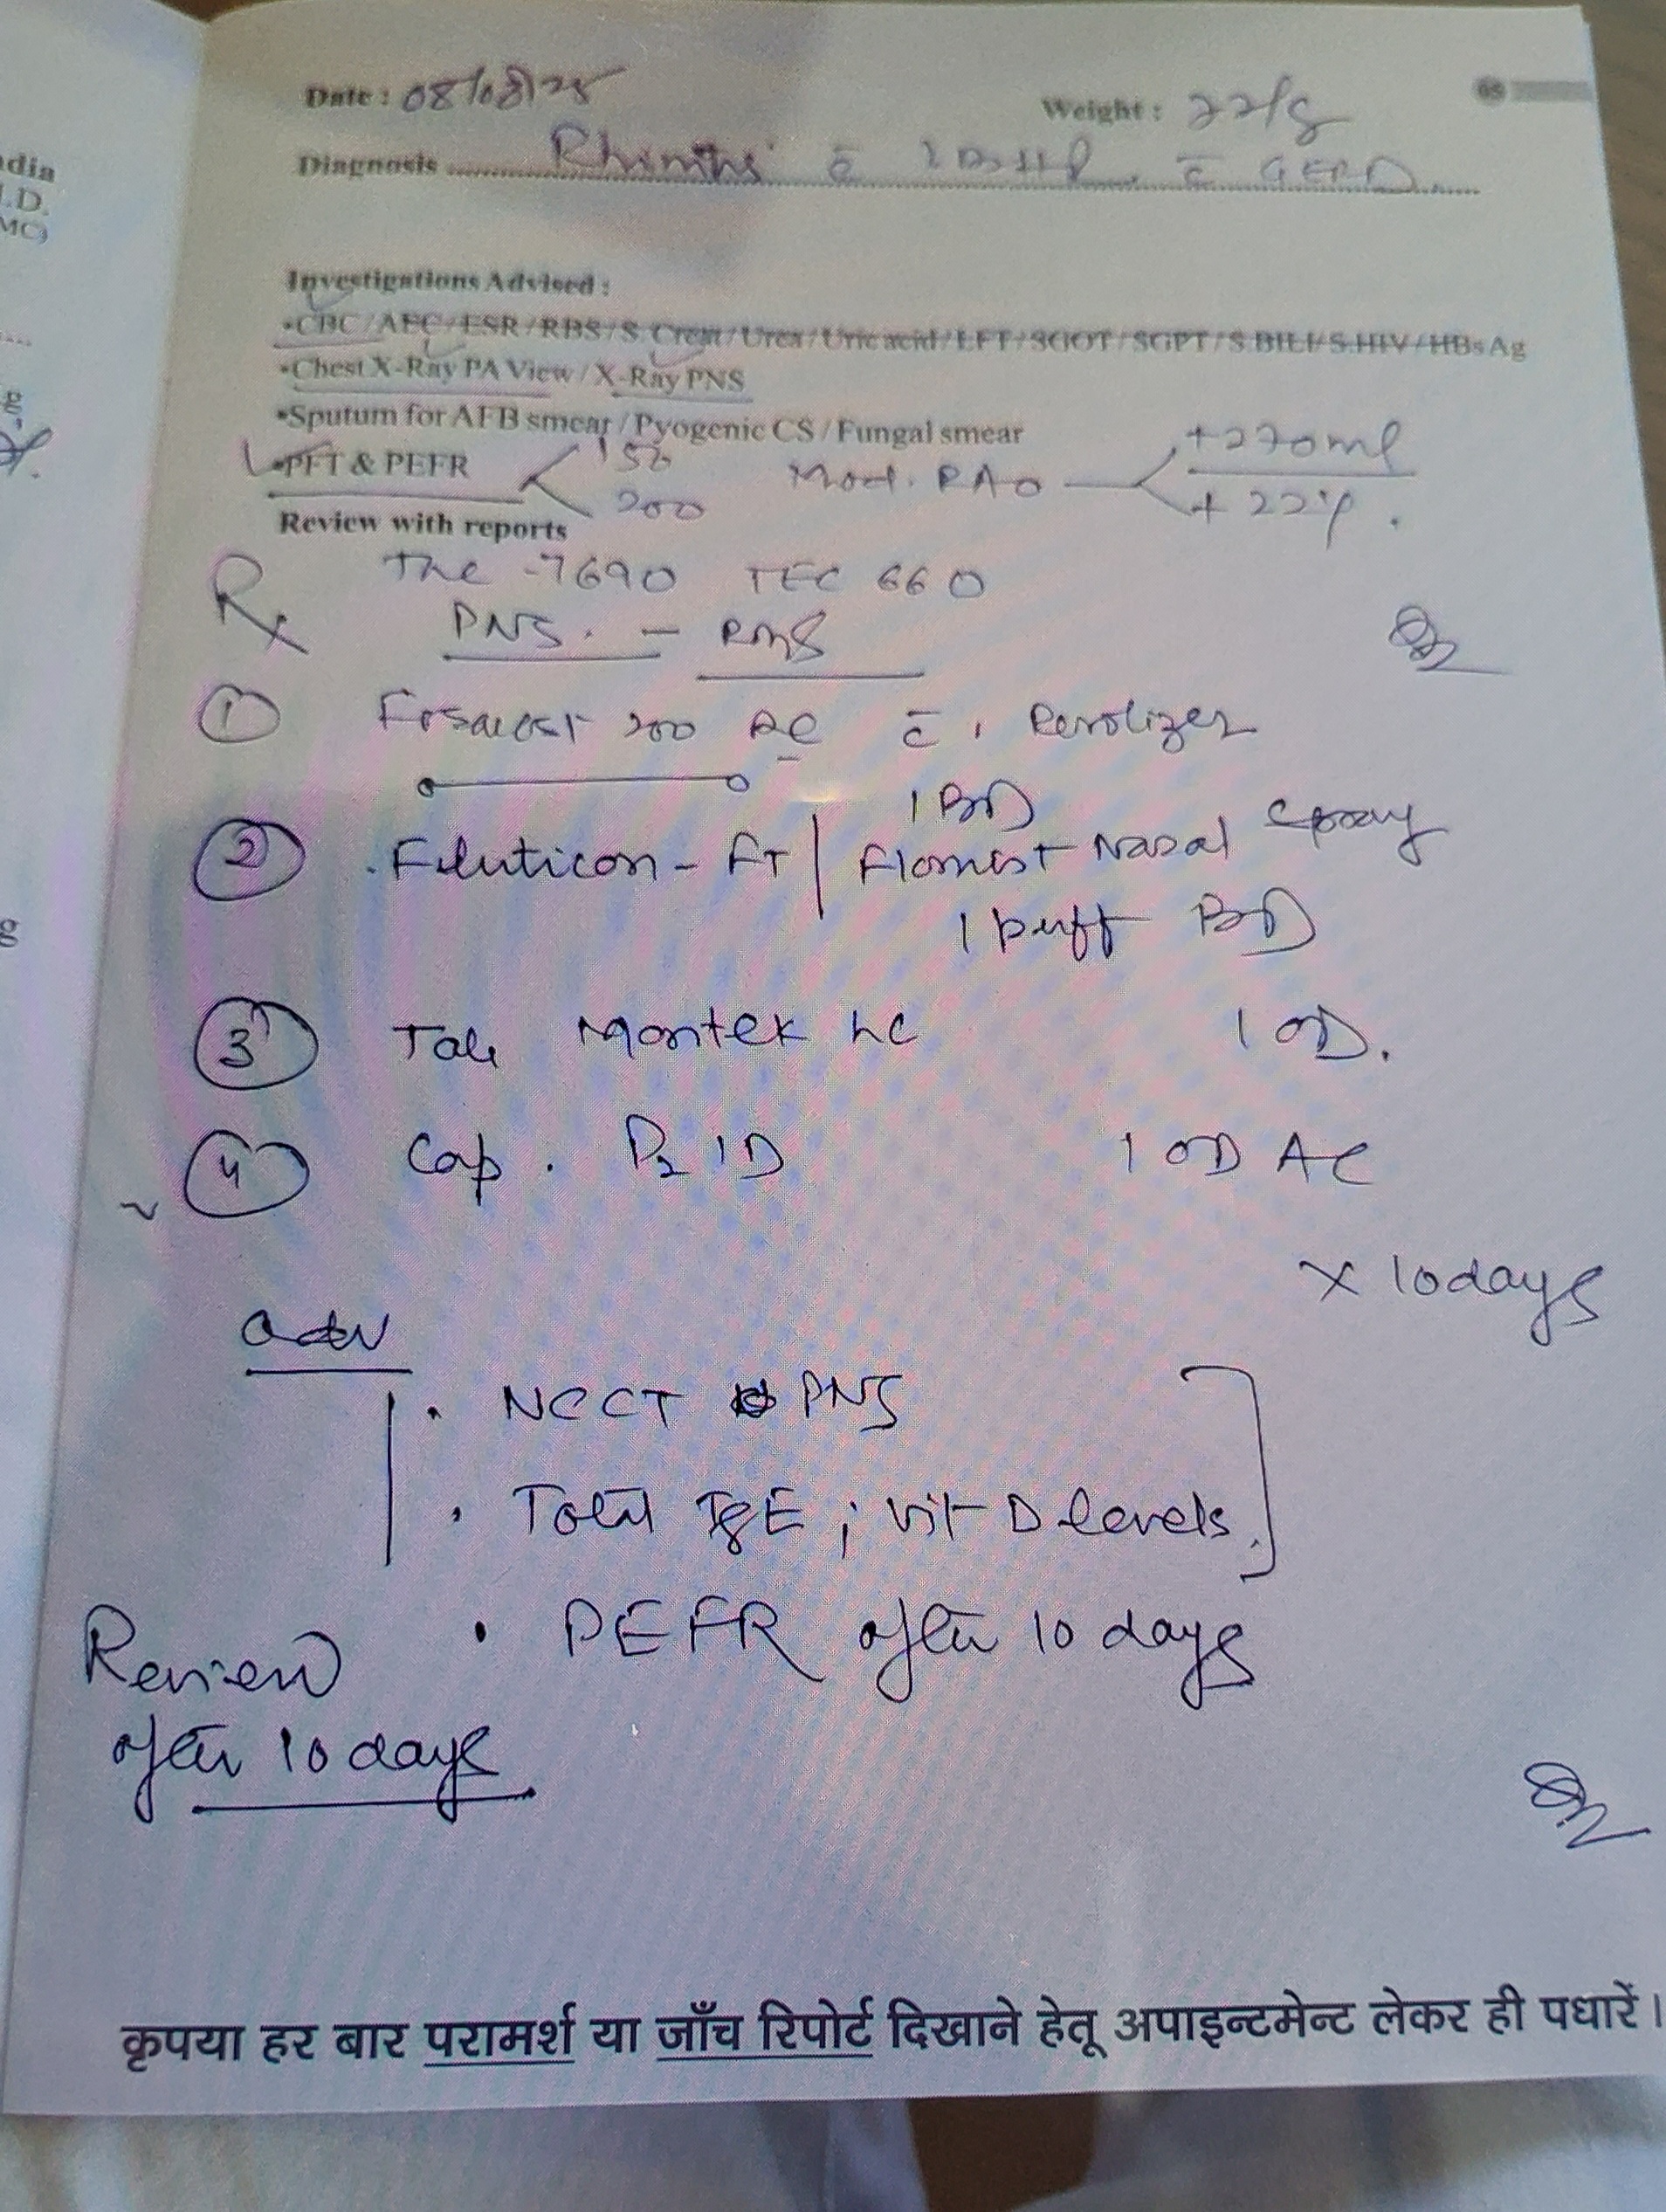 Date : 08/08/25 Weight :
Diagnosis Rhinitis c̄ c̄ GERD.
Investigations Advised :
•CBC/AEC/ESR/RBS/S. Creat/Urea/Uric acid/LFT/SGOT/SGPT/S.BILI/S.HIV/HBsAg
•Chest X-Ray PA View/X-Ray PNS
•Sputum for AFB smear/Pyogenic CS/Fungal smear
•PFT & PEFR 150 200 Mod. RAO +270ml + 22%.
Review with reports
Rx
-7690 TEC 660
PNS. -
① 200 c̄ Revolizer
1 BD
② - FT | Flomist Nasal Spray
1 puff BD
③ Tab Montek LC 1 OD.
④ Cap. 1 OD AC
x 10 days
adv
• NCCT PNS
• Total IgE ; Vit D levels.
• PEFR after 10 days
Review
after 10 days
कृपया हर बार परामर्श या जाँच रिपोर्ट दिखाने हेतू अपाइन्टमेन्ट लेकर ही पधारें।